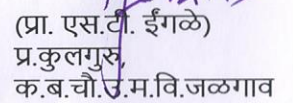 (प्रा. एस.टी. ईंगळे)
प्र.कुलगुरु,
क.ब.चौ.उ.म.वि.जळगाव